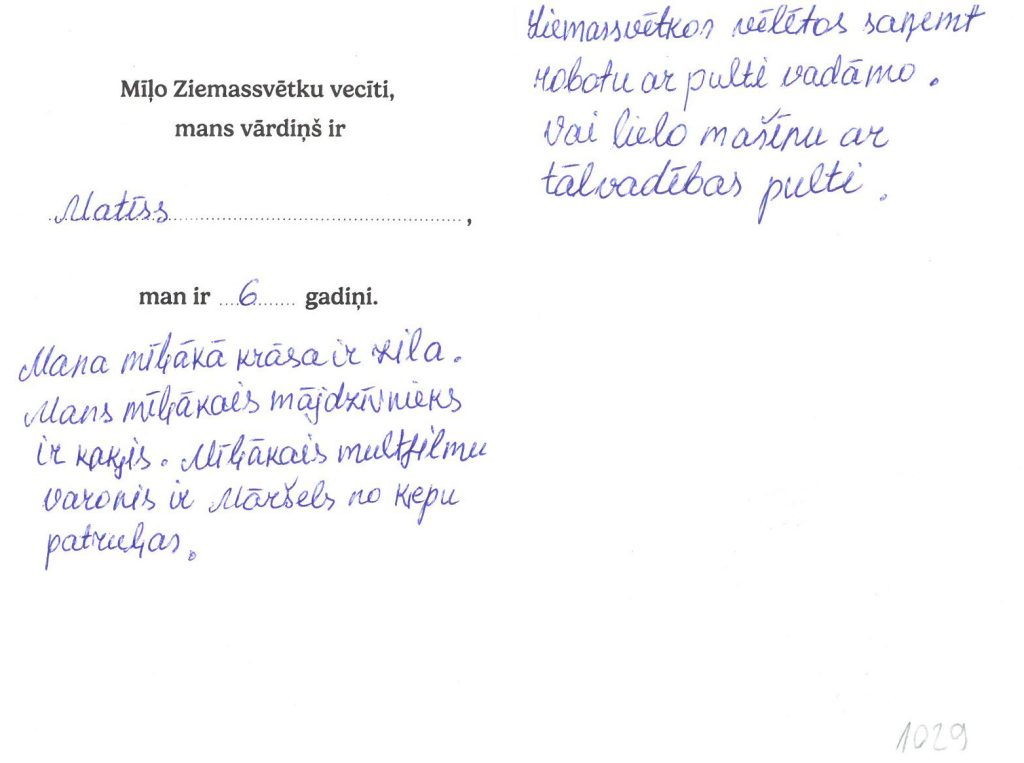 Mīļo Ziemassvētku vecīti,
mans vārdiņš ir
Matīss,
man ir 6 gadiņi.
Mana mīļākā krāsa ir zila.
Mans mīļākais mājdzīvnieks
ir kaķis. Mīļākais multfilmu
varonis ir Māršels no Ķepu
patruļas.
Ziemassvētkos vēlētos saņemt
robotu ar pulti vadāmo.
Vai lielo mašīnu ar
tālvadības pulti.
1029